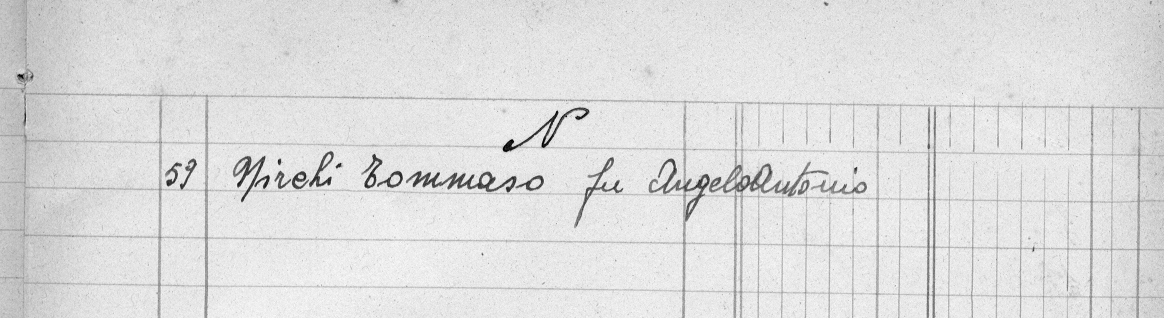 N
59 Nirchi Tommaso fu AngeloAntonio